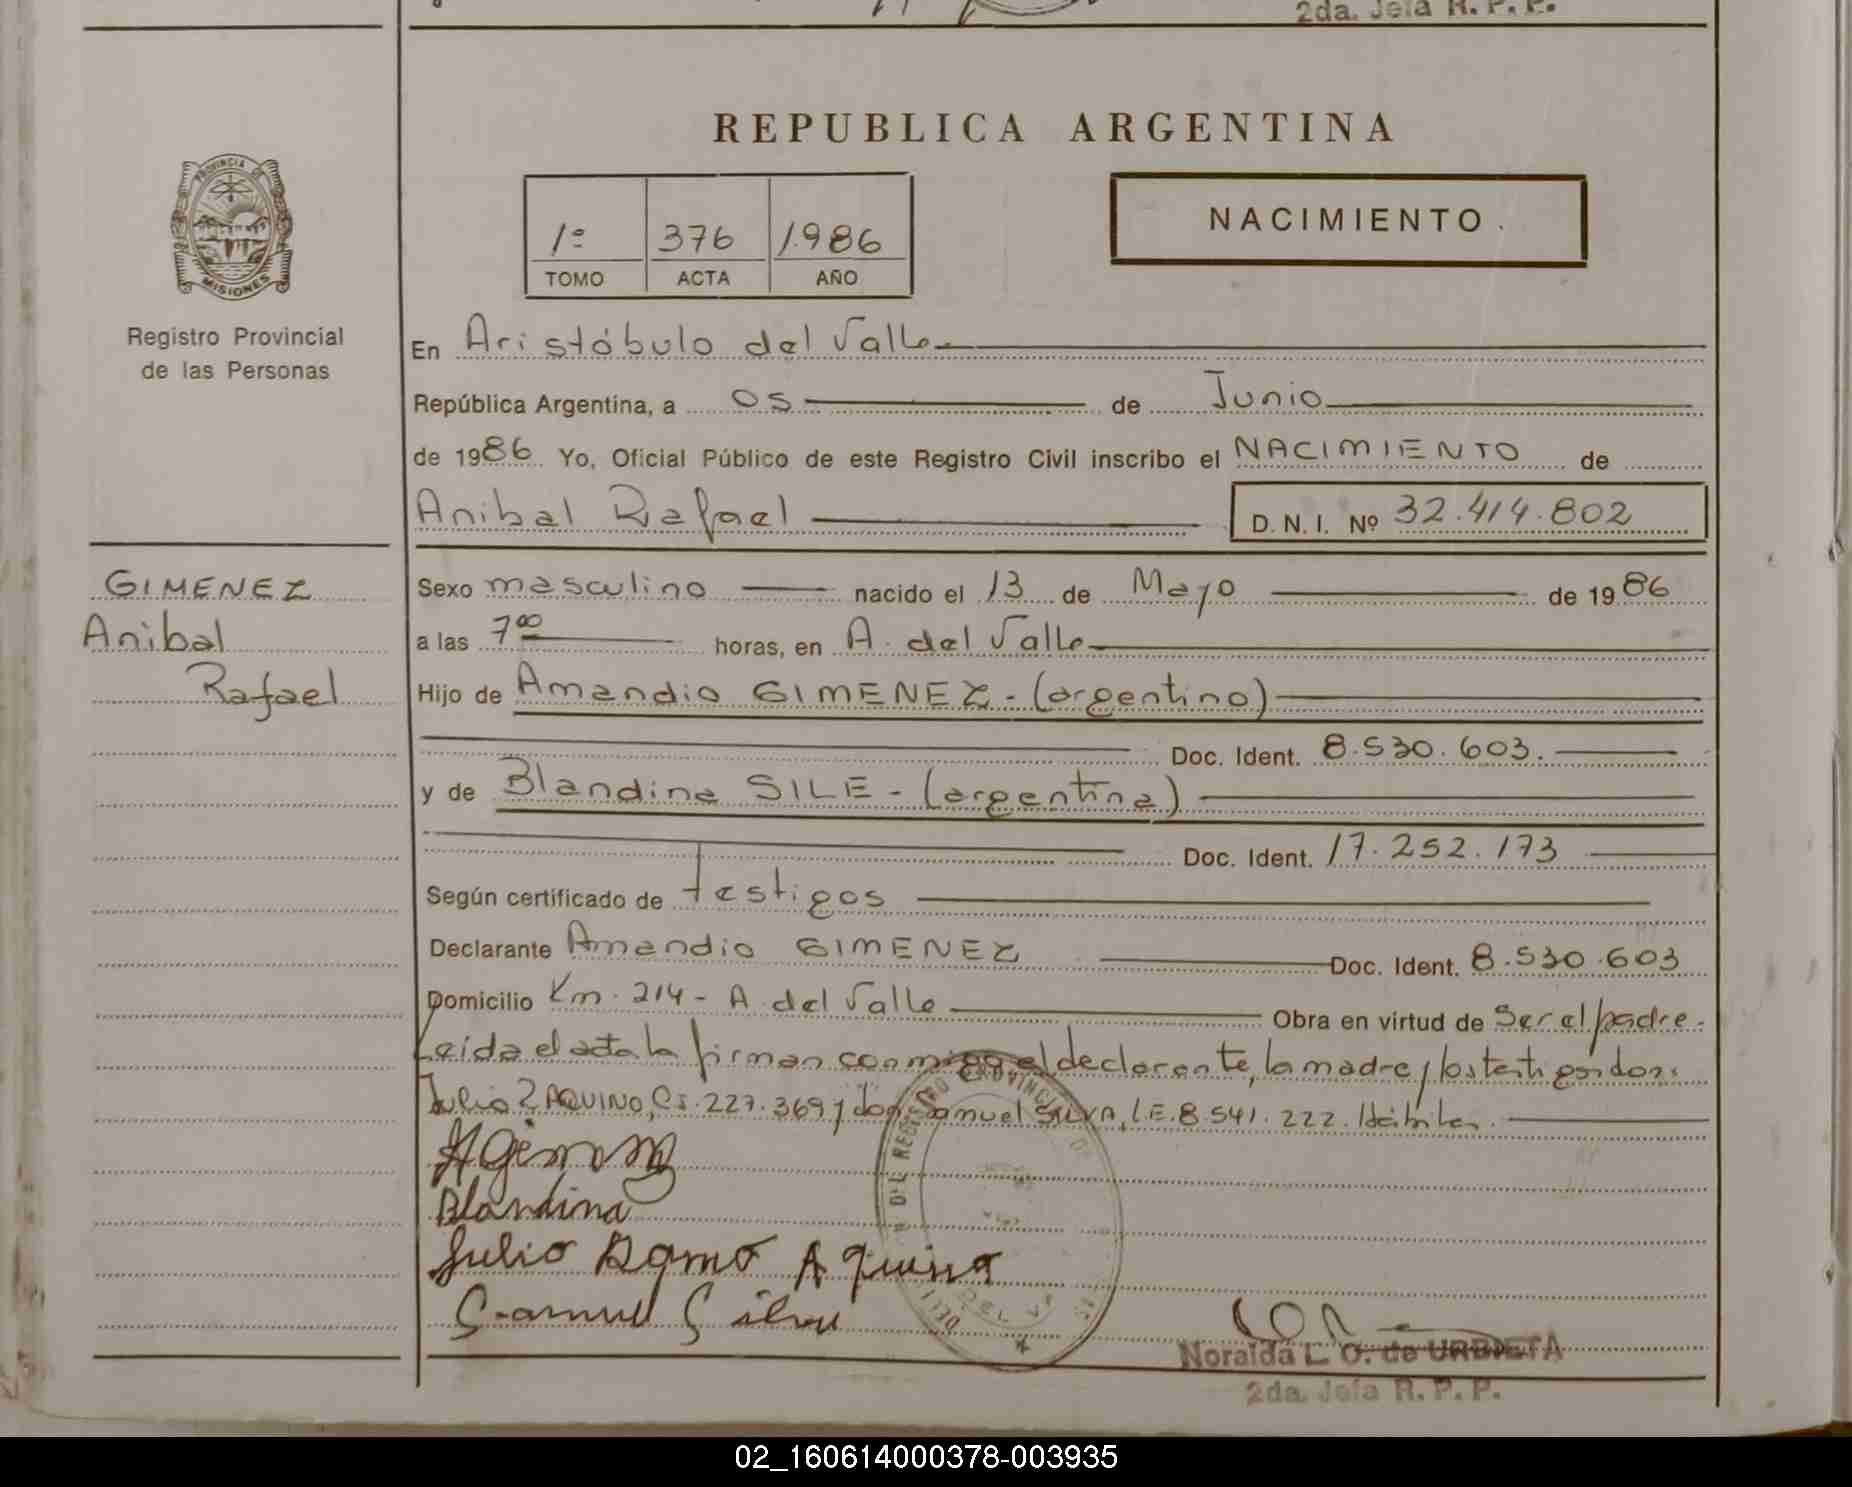 2da. Jefa R. P. P.
REPUBLICA ARGENTINA
PROVINCIA DE
MISIONES
Registro Provincial
de las Personas
1º 376 1.986
TOMO ACTA AÑO
NACIMIENTO.
En Aristóbulo del Valle
República Argentina, a 05 de Junio
de 1986 Yo, Oficial Público de este Registro Civil inscribo el NACIMIENTO de
Anibal Rafael D. N. I. Nº 32.414.802
GIMENEZ
Anibal
Rafael
Sexo masculino nacido el 13 de Mayo de 1986
a las 7⁰⁰ horas, en A. del Valle
Hijo de Amandio GIMENEZ - (argentino)
Doc. Ident. 8.530.603.
y de Blandina SILE - (argentina)
Doc. Ident. 17.252.173
Según certificado de testigos
Declarante Amandio GIMENEZ Doc. Ident. 8.530.603
Domicilio Km. 214 - A. del Valle Obra en virtud de Ser el padre.
Leida el acta la firman conmigo el declarante, la madre y los testigos don:
Julio R AQUINO, C.I. 227.369 y don Samuel SILVA, L.E. 8.541.222. Hábiles.
Blandina
Julio Ramo Aquino
Samuel Silva
DEL REGISTRO PROVINCIAL DE
Noralda L. O. de URBIETA
2da. Jefa R. P. P.
02_160614000378-003935